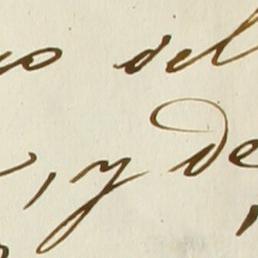 del
, y de